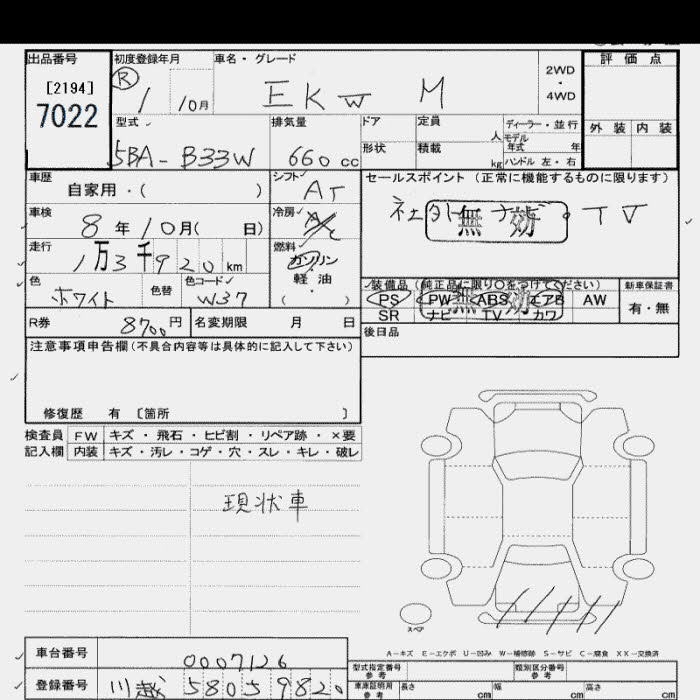 出品番号 初度登録年月 車名・グレード 2WD・4WD 評価点
[2194]
7022
R 1 10月 EKw M
型式 排気量 ドア 定員 人 ディーラー・並行 外装 内装
5BA-B33W 660 cc 形状 積載 kg モデル年式 年 ハンドル 左・右
車歴 自家用・( ) シフト AT セールスポイント (正常に機能するものに限ります)
車検 8年10月( 日) 冷房 A/C 社外ナビ・TV
無効
走行 1万3千920 km 燃料 ガソリン 軽油 ・ ( )
色 ホワイト 色替 色コード W37
装備品 (純正品に限り〇をつけてください) 新車保証書
PS PW ABS エアB AW 有・無
無効
SR ナビ TV カワ
R券 8700円 名変期限 月 日 後日品
注意事項申告欄(不具合内容等は具体的に記入して下さい)
修復歴 有 [箇所 ]
検査員 FW キズ・飛石・ヒビ割・リペア跡・×要
記入欄 内装 キズ・汚レ・コゲ・穴・スレ・キレ・破レ
現状車
スペア
A-キズ E-エクボ U-凹み W-補修跡 S-サビ C-腐食 XX-交換済
車台番号 0007126 型式指定番号 参考 類別区分番号 参考
登録番号 川越 580 5 9820 車庫証明用 参考 長さ cm 幅 cm 高さ cm